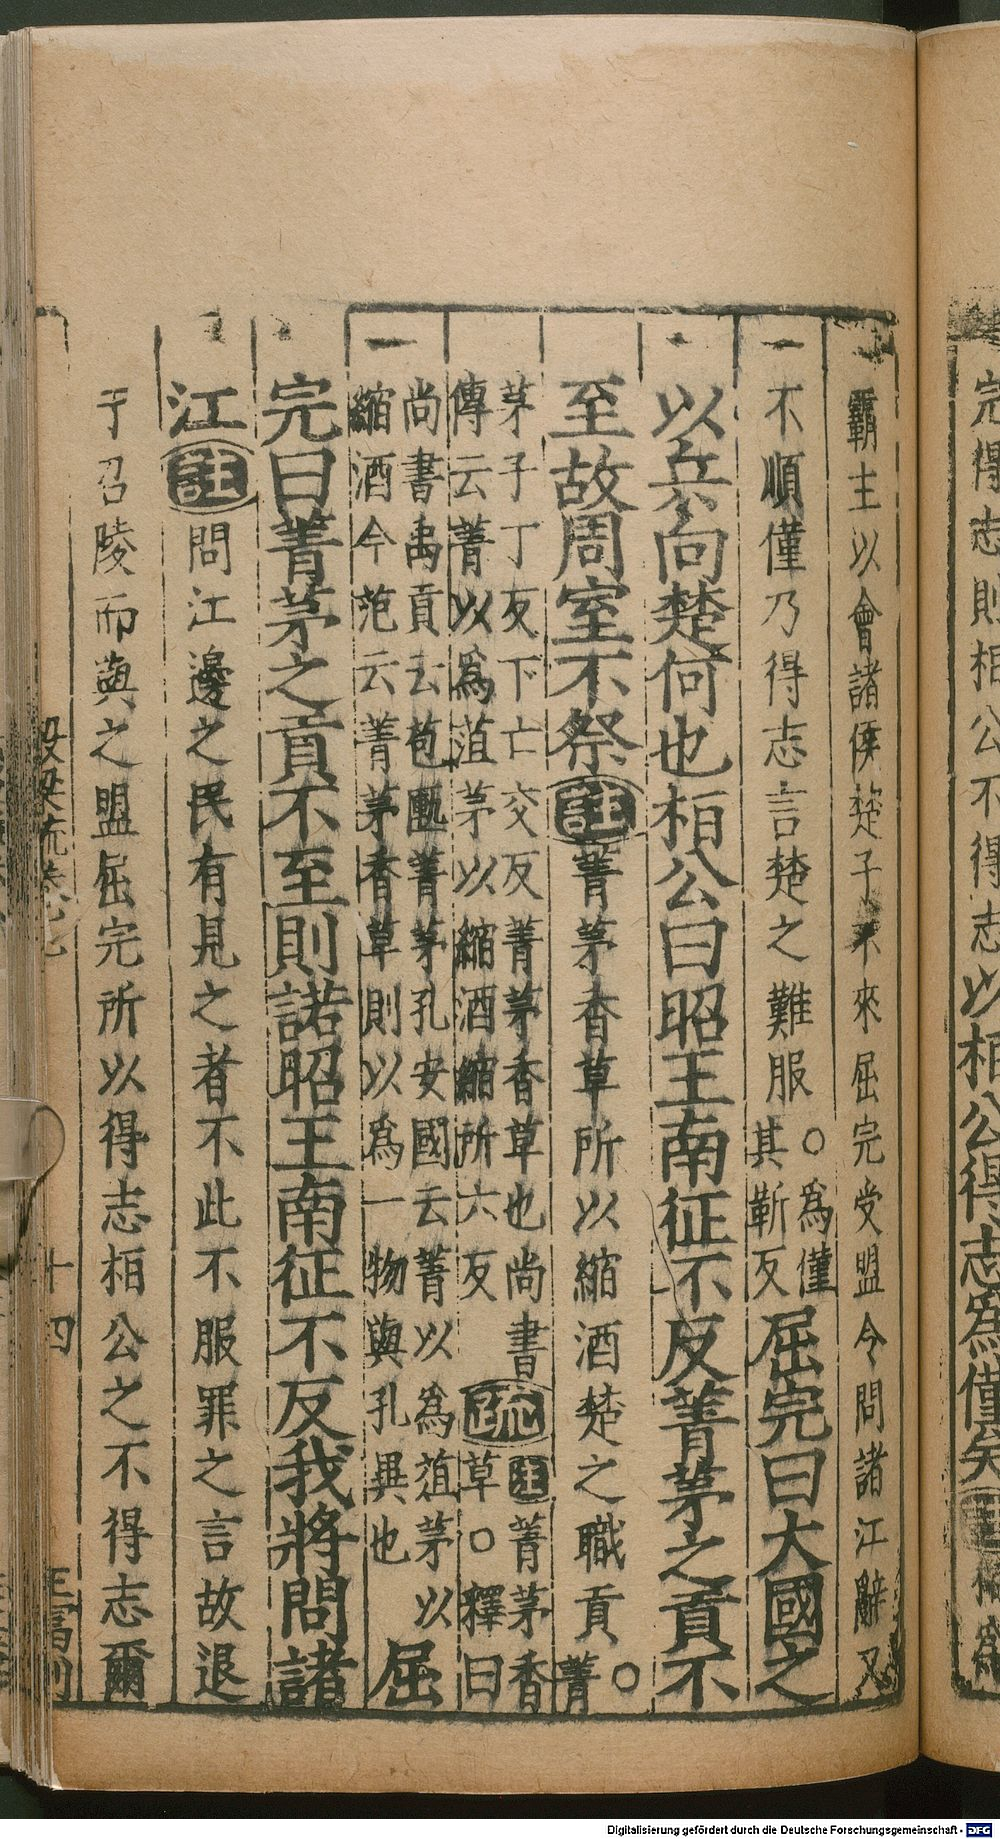 完得志則桓公不得志以桓公得志爲僅矣
霸主以會諸侯楚子不來屈完受盟令問諸江辭又
不順僅乃得志言楚之難服○爲僅其靳反屈完曰大國之
以兵向楚何也桓公曰昭王南征不反菁茅之貢不
至故周室不祭註菁茅香草所以縮酒楚之職貢○菁
茅子丁反下亡交反菁茅香草也尚書
傳云菁以爲菹茅以縮酒縮所六反
疏註菁茅香草○釋曰
尚書禹貢云苞匭菁茅孔安國云菁以爲葅茅以
縮酒今范云菁茅香草則以爲一物與孔異也屈
完曰菁茅之貢不至則諾昭王南征不反我將問諸
江註問江邊之民有見之者不此不服罪之言故退
于召陵而與之盟屈完所以得志桓公之不得志爾
十四
Digitalisierung gefördert durch die Deutsche Forschungsgemeinschaft - DFG